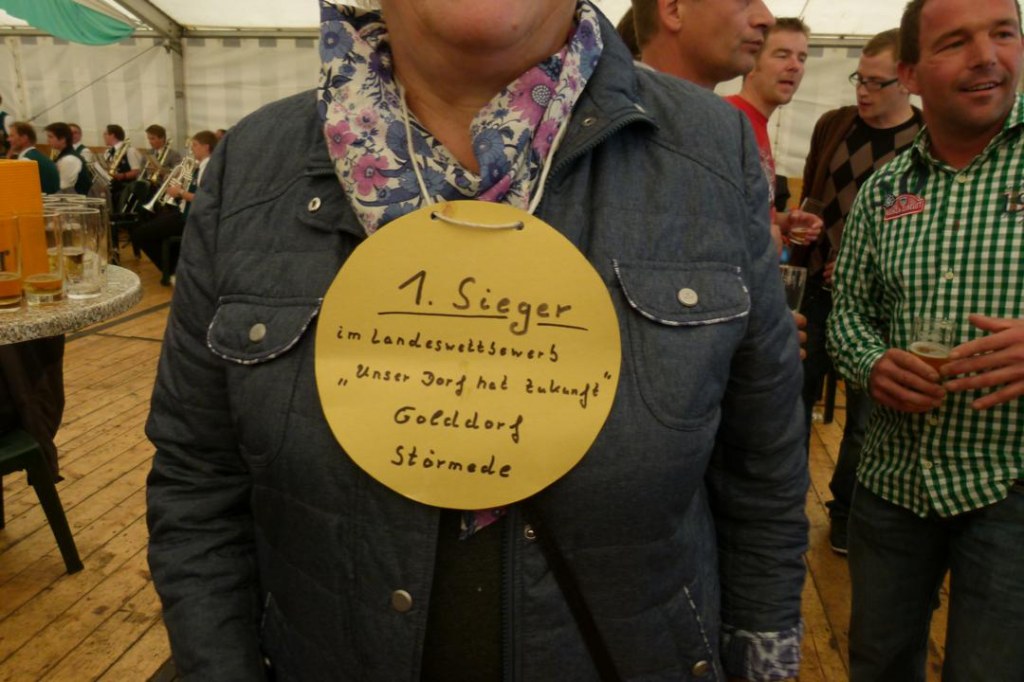 1. Sieger
im Landeswettbewerb
„Unser Dorf hat Zukunft"
Golddorf
Störmede